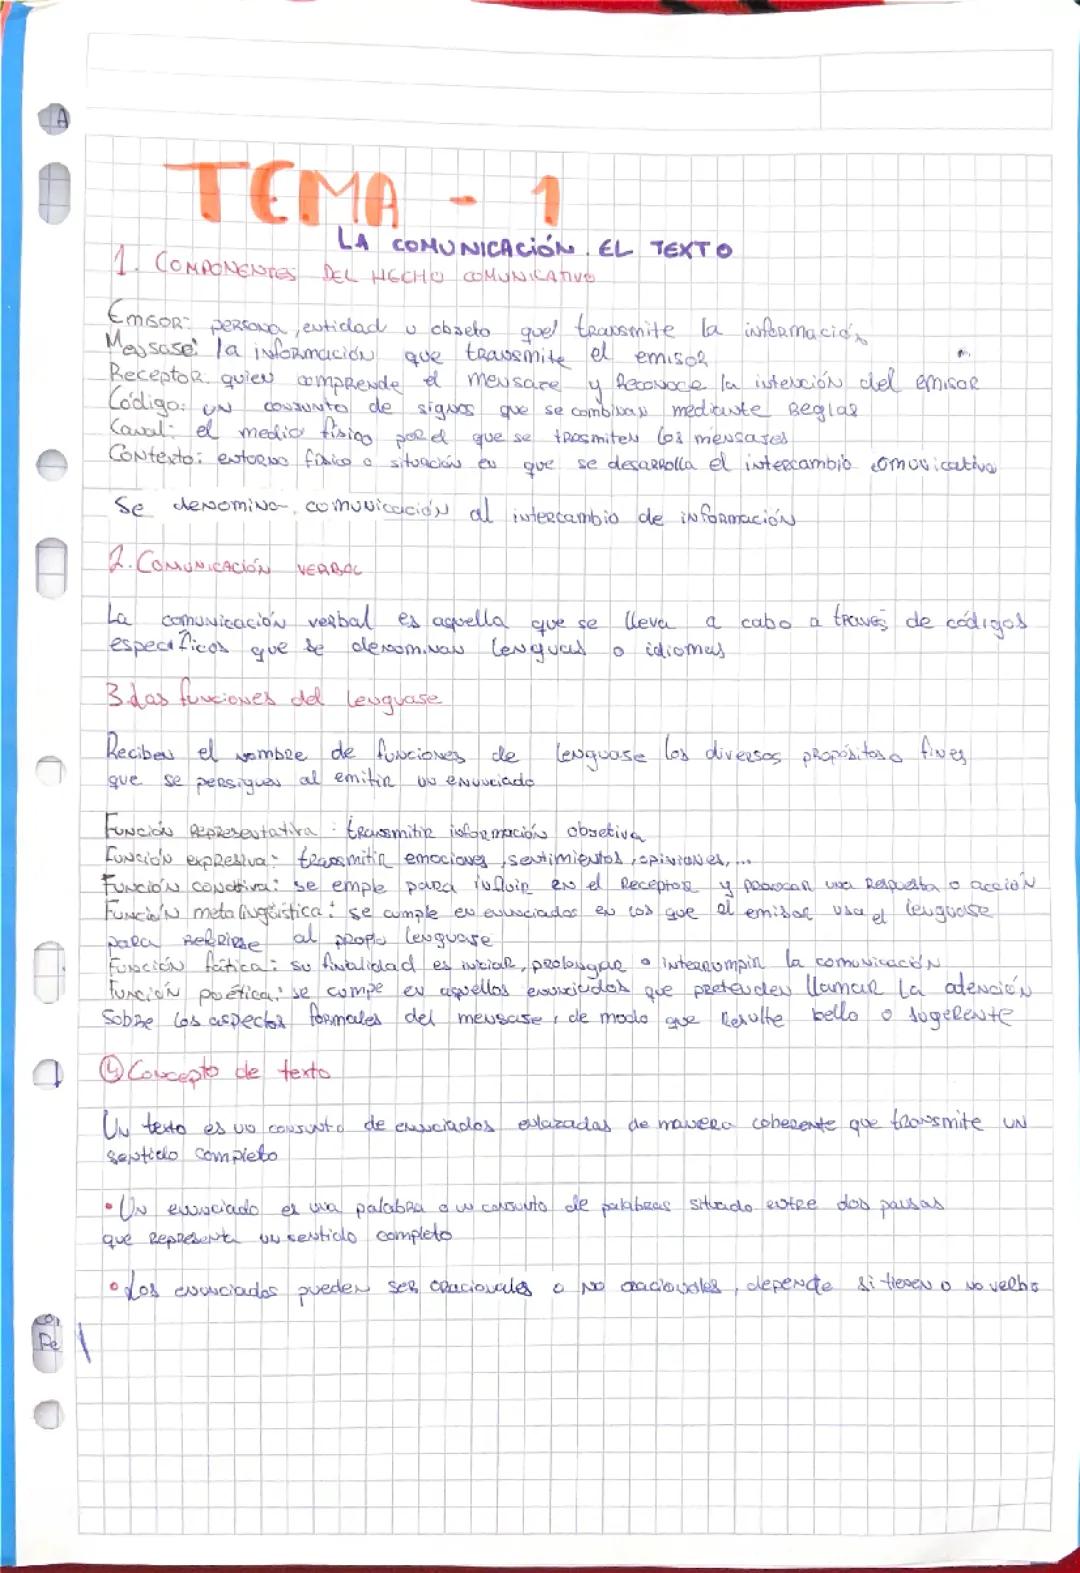 A
TEMA - 1
LA COMUNICACIÓN. EL TEXTO
1. COMPONENTES DEL HECHO COMUNICATIVO
Emisor: persona, entidad u objeto que transmite la información
Mensaje: la información que transmite el emisor
Receptor: quien comprende el mensaje y reconoce la intención del emisor
Código: un conjunto de signos que se combinan mediante reglas
Canal: el medio físico por el que se trasmiten los mensajes
Contexto: entorno físico o situación en que se desarrolla el intercambio comunicativo
Se denomina comunicación al intercambio de información
2. COMUNICACIÓN VERBAL
La comunicación verbal es aquella que se lleva a cabo a través de códigos
específicos que se denominan lenguas o idiomas
3. Las funciones del lenguaje
Reciben el nombre de funciones de lenguaje los diversos propósitos o fines
que se persiguen al emitir un enunciado
Función representativa: transmitir información objetiva
Función expresiva: transmitir emociones, sentimientos, opiniones, ...
Función conativa: se emple para influir en el receptor y provocar una respuesta o acción
Función metalingüistica: se cumple en enunciados en los que el emisor usa el lenguaje
para referirse al propio lenguaje
Función fática: su finalidad es iniciar, prolongar o interrumpir la comunicación
Función poética: se cumpe en aquellos enunciados que pretenden llamar la atención
sobre los aspectos formales del mensaje, de modo que resulte bello o sugerente
4 Concepto de texto
Un texto es un conjunto de enunciados enlazadas de manera coherente que transmite un
sentido completo
• Un enunciado es una palabra o un conjunto de palabras situado entre dos pausas
que representa un sentido completo
• Los enunciados pueden ser oracionales o no oracionales, depende si tienen o no verbo